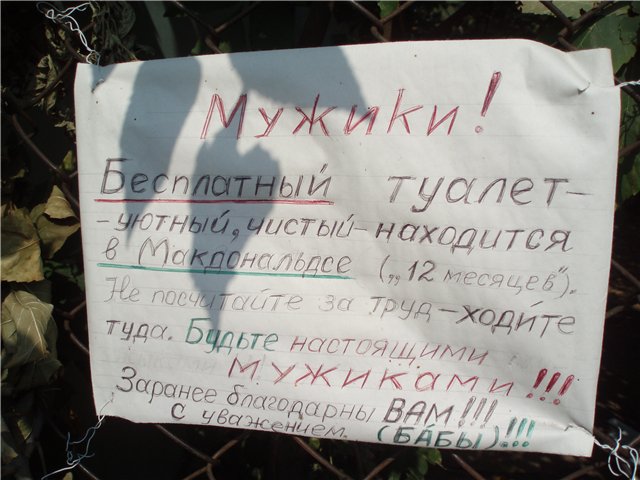 Мужики!
Бесплатный туалет-
-уютный, чистый-находится
в Макдональдсе („12 месяцев").
Не посчитайте за труд-ходи́те
туда. Будьте настоящими
мужиками!!!
Заранее благодарны ВАМ!!!
С уважением. (БА́БЫ)!!!